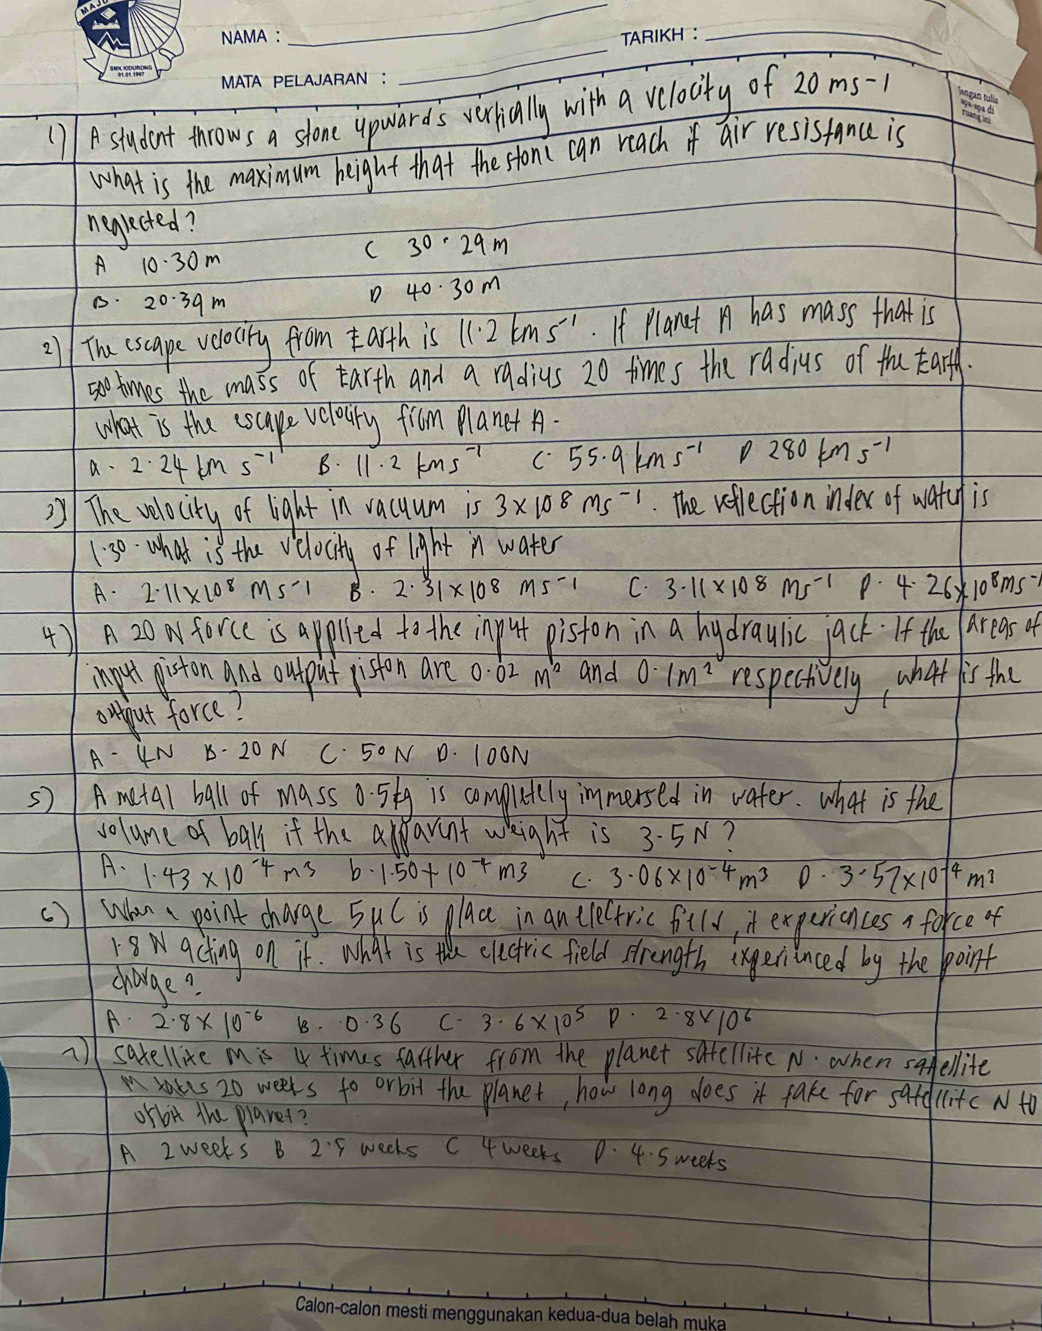 MAJU
SMK KIDURONG
01.01.1997
NAMA :
TARIKH :
MATA PELAJARAN :
Jangan tulis
apa-apa di
ruang ini
1) A student throws a stone upwards vertically with a velocity of 20 ms-1
What is the maximum height that the stone can reach if air resistance is
neglected?
A 10.30m C 30.29m
B. 20.39m D 40.30m
2) The escape velocity from Earth is 11.2 km s⁻¹. If Planet A has mass that is
500 times the mass of Earth and a radius 20 times the radius of the Earth.
what is the escape velocity from planet A.
a. 2.24 km s⁻¹ B. 11.2 kms⁻¹ C. 55.9 kms⁻¹ D 280 km s⁻¹
3) The velocity of light in vacuum is 3×108 ms⁻¹. The reflection index of water is
1.30. What is the velocity of light in water
A. 2.11×10⁸ ms⁻¹ B. 2.31×108 ms⁻¹ C. 3.11×108 ms⁻¹ D. 4.26×10⁸ms⁻¹
4) A 20 N force is applied to the input piston in a hydraulic jack. If the areas of
input piston and output piston are 0.02 m² and 0.1m² respectively, what is the
output force?
A - 4N B. 20 N C. 50 N D. 100N
5) A metal ball of mass 0.5kg is completely immersed in water. What is the
volume of ball if the apparent weight is 3.5N?
A. 1.43 ×10⁻⁴ m3 b. 1.50+10⁻⁴ m3 C. 3.06×10⁻⁴m³ D. 3.57×10⁻⁴ m³
6) When a point charge 5μC is place in an electric field, it experiences a force of
1.8 N acting on it. What is the electric field strength experienced by the point
charge?
A. 2.8×10⁻⁶ B. 0.36 C- 3.6×10⁵ D. 2.8×10⁶
7) satellite M is 4 times farther from the planet satellite N. when satellite
M takes 20 weeks to orbit the planet, how long does it take for satellite N to
orbit the planet?
A 2 weeks B 2.5 weeks C 4 weeks D. 4.5 weeks
Calon-calon mesti menggunakan kedua-dua belah muka